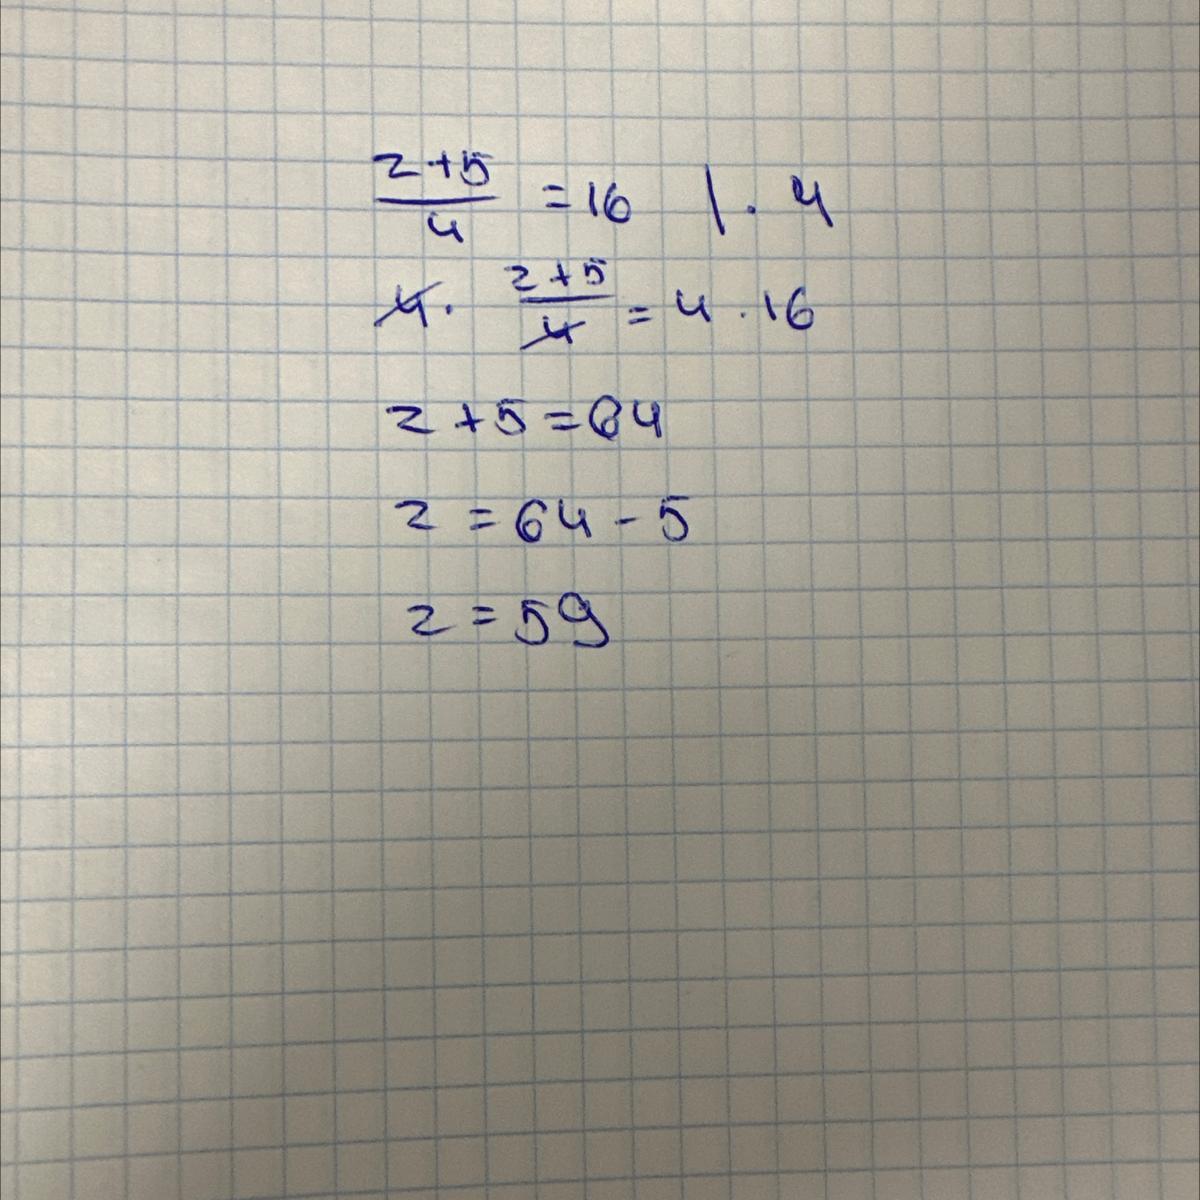 z+5/4 = 16 | · 4
4 · z+5/4 = 4 · 16
z + 5 = 64
z = 64 - 5
z = 59